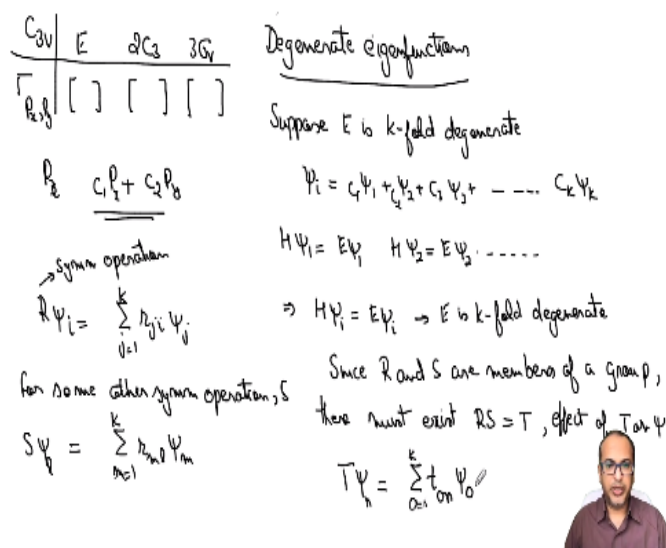 C3v | E 2C3 3σv
Γ Px, Py | [ ] [ ] [ ]
Px C1Px + C2Py
→ symm operation
Rψi = Σ(j=1 to k) rji ψj
For some other symm operation, S
Sψl = Σ(m=1 to k) rml ψm
Degenerate eigenfunctions
Suppose E is k-fold degenerate
ψi = C1ψ1 + C2ψ2 + C3ψ3 + ---- Ckψk
Hψ1 = Eψ1 Hψ2 = Eψ2 -----
⇒ Hψi = Eψi → E is k-fold degenerate
Since R and S are members of a group,
there must exist RS = T, effect of T on ψ
Tψn = Σ(o=1 to k) ton ψo